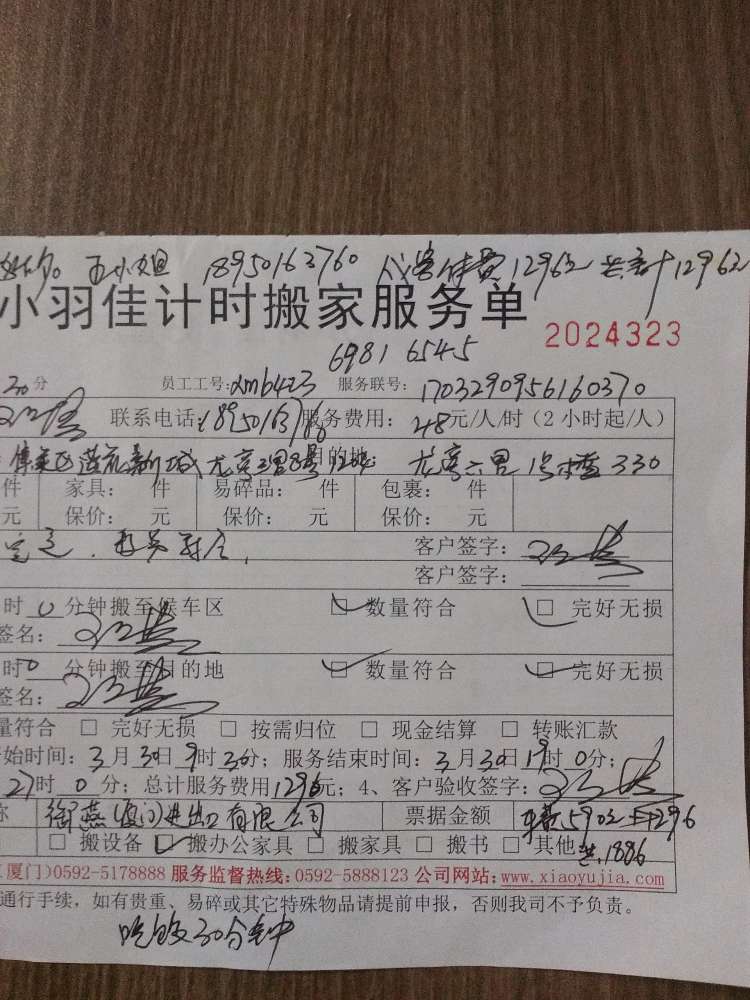 王小姐 18950163760 代客付费12962 共计12962
小羽佳计时搬家服务单 2024323
6981 6545
30分 员工工号:xmb423 服务联号:1703290956160370
联系电话:189501637 服务费用:48元/人/时(2小时起/人)
龙亭 8号1204 目的地: 龙亭六里 330
件 家具: 件 易碎品: 件 包裹: 件
元 保价: 元 保价: 元 保价: 元
客户签字:
客户签字:
时0分钟搬至候车区 ☑ 数量符合 ☑ 完好无损
签名:
时0分钟搬至目的地 ☑ 数量符合 ☑ 完好无损
签名:
量符合 □ 完好无损 □ 按需归位 □ 现金结算 □ 转账汇款
开始时间:3月30日9时30分;服务结束时间:3月30日19时0分;
27时0分;总计服务费用1296元;4、客户验收签字:
称 燕(厦门)进出口有限公司 票据金额 590 1296
□ 搬设备 ☑ 搬办公家具 □ 搬家具 □ 搬书 □ 其他 共1886
(厦门)0592-5178888 服务监督热线:0592-5888123 公司网站:www.xiaoyujia.com
通行手续,如有贵重、易碎或其它特殊物品请提前申报,否则我司不予负责。
吃饭30分钟